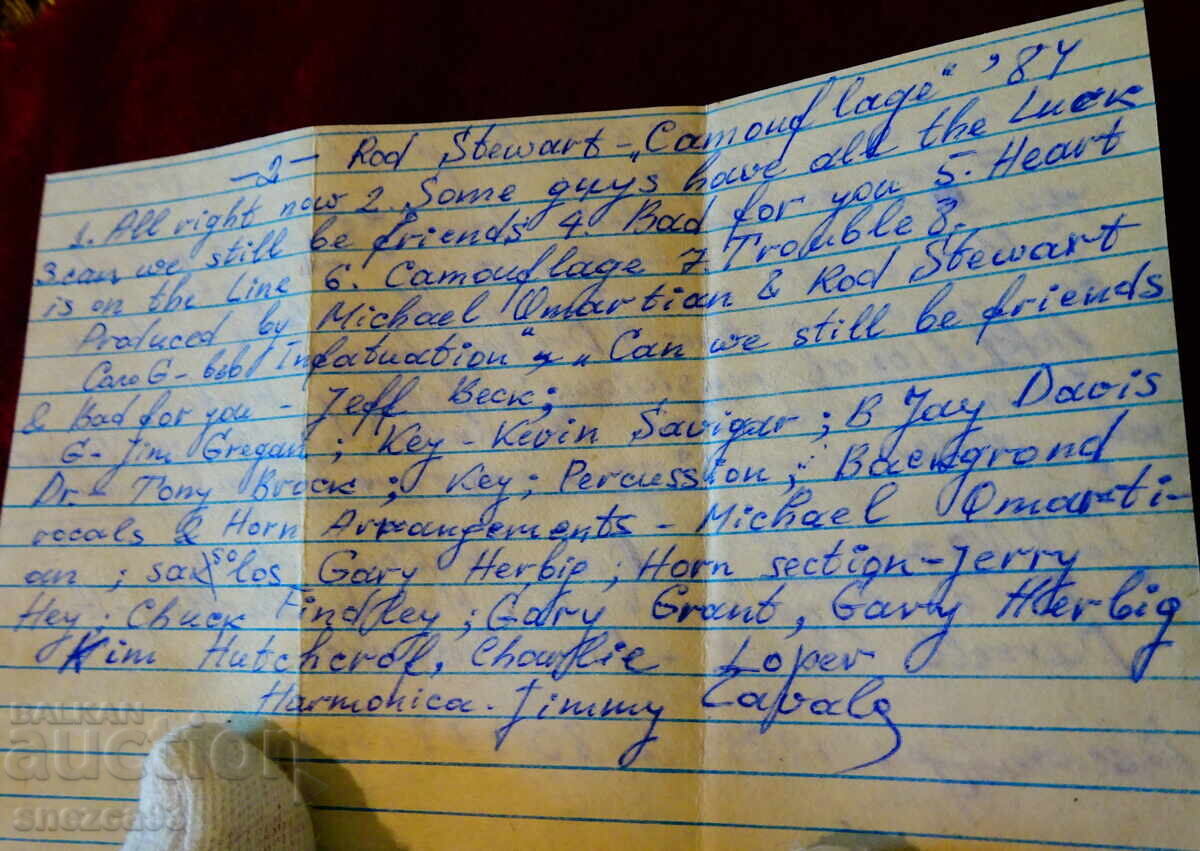 -2- Rod Stewart - „Camouflage" '84
1. All right now 2. Some guys have all the Luck
3 can we still be friends 4. Bad for you 5. Heart
is on the Line 6. Camouflage 7. Trouble 8.
Produced by Michael Omartian & Rod Stewart
Infatuation", „Can we still be friends
& Bad for you - Jeff Beck;
G- Jim Gregan; Key - Kevin Savigar; B Jay Davis
Dr- Tony Brock; Key; Percussion; Background
vocals & Horn Arrangements - Michael Omarti-
an; sax solos Gary Herbig; Horn section - Jerry
Hey; Chuck Findley; Gary Grant, Gary Herbig
Kim Hutchcrof, Charlie Loper
Harmonica - Jimmy Zavala
BALKAN
auction
snezca88